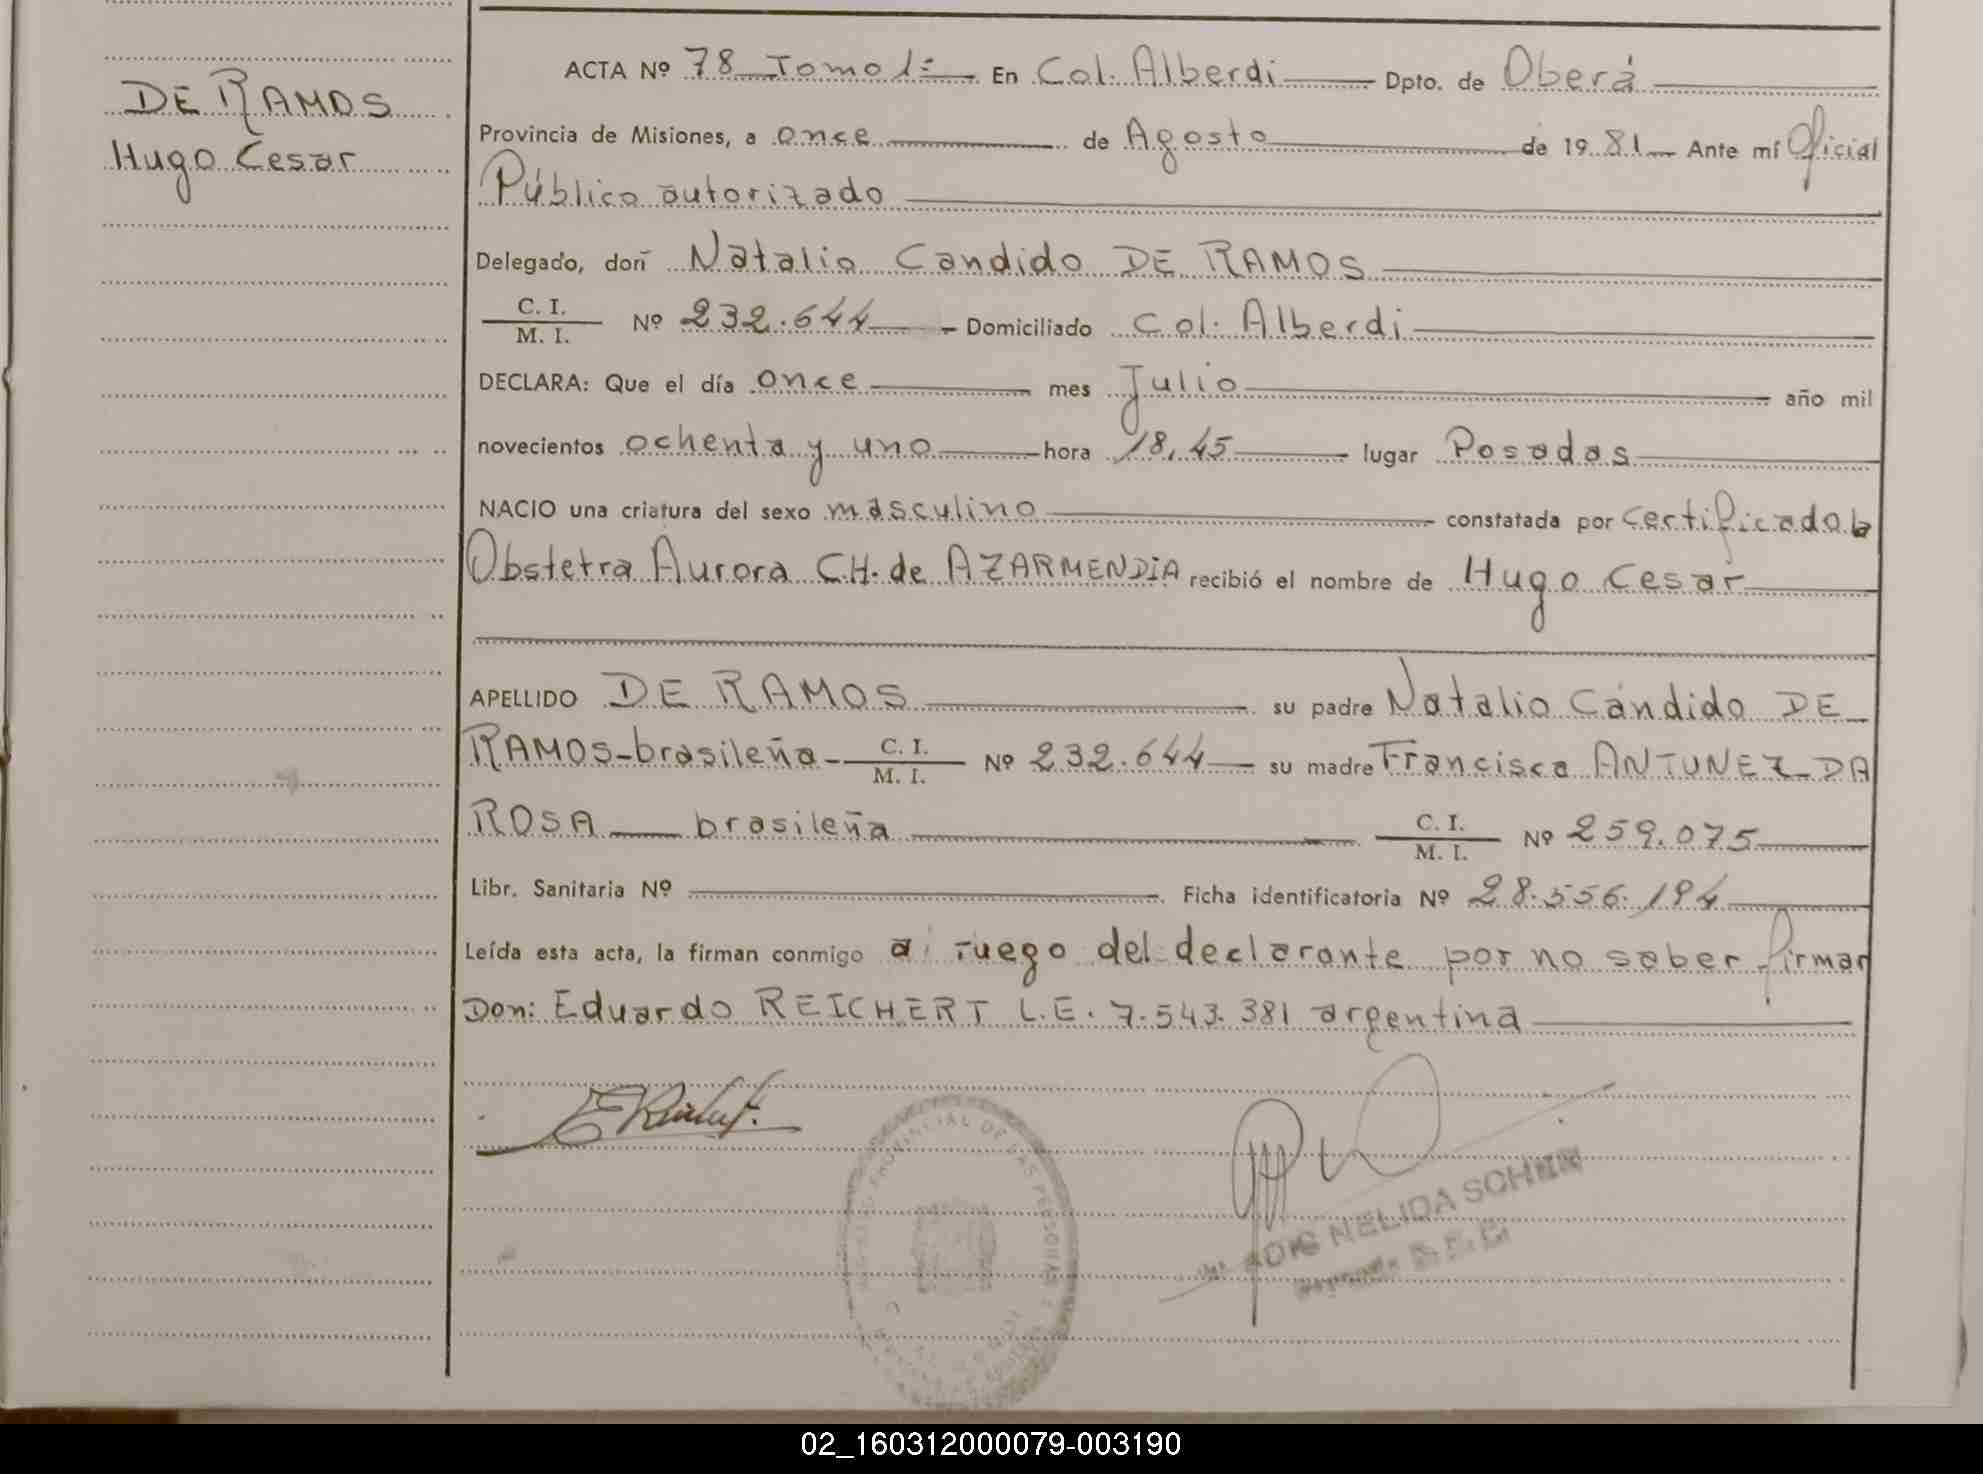 DE RAMOS
Hugo Cesar
ACTA Nº 78 Tomo 1= En Col. Alberdi Dpto. de Oberá
Provincia de Misiones, a once de Agosto de 1981 Ante mí Oficial
Público autorizado
Delegado, don Natalio Candido DE RAMOS
C. I.
M. I. Nº 232.644 Domiciliado Col. Alberdi
DECLARA: Que el día once mes Julio año mil
novecientos ochenta y uno hora 18,45 lugar Posadas
NACIO una criatura del sexo masculino constatada por certificado la
Obstetra Aurora CH. de AZARMENDIA recibió el nombre de Hugo Cesar
APELLIDO DE RAMOS su padre Natalio Cándido DE
RAMOS-brasileña- C. I. M. I. Nº 232.644 su madre Francisca ANTUNEZ DA
ROSA brasileña C. I. M. I. Nº 259.075
Libr. Sanitaria Nº Ficha identificatoria Nº 28.556.194
Leída esta acta, la firman conmigo a ruego del declarante por no saber firmar
Don: Eduardo REICHERT L.E. 7.543.381 argentina
PROVINCIAL DE LAS PERSONAS
NELIDA
02_160312000079-003190